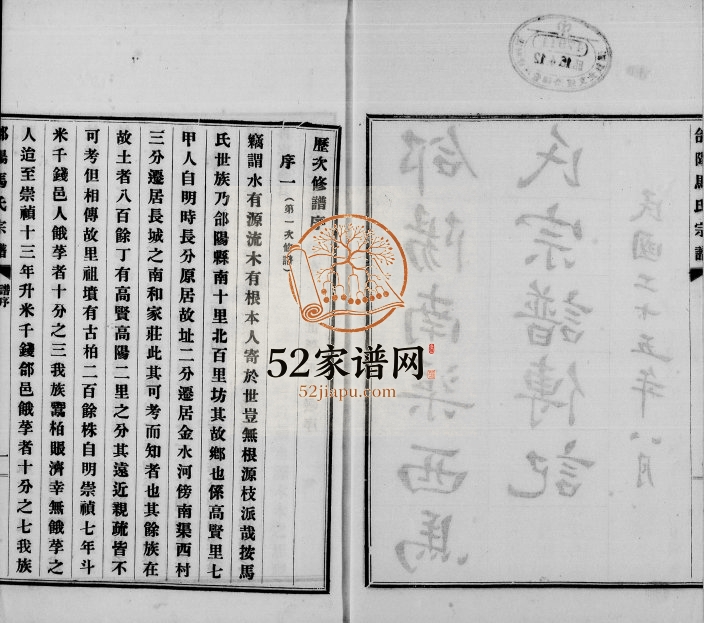 郃陽馬氏宗譜
民國二十五年八月
氏宗譜傳記
郃陽南渠西馬
歷次修譜序
序一（第一次修譜）
竊謂水有源流木有根本人寄於世豈無根源枝派哉按馬
氏世族乃郃陽縣南十里北百里坊其故鄉也係高賢里七
甲人自明時長分原居故址二分遷居金水河傍南渠西村
三分遷居長城之南和家莊此其可考而知者也其餘族在
故土者八百餘丁有高賢高陽二里之分其遠近親疏皆不
可考但相傳故里祖墳有古柏二百餘株自明崇禎七年斗
米千錢邑人餓莩者十分之三我族鬻柏賑濟幸無餓莩之
人迨至崇禎十三年升米千錢郃邑餓莩者十分之七我族
郃陽馬氏宗譜
譜序
一
52家谱网
52jiapu.com